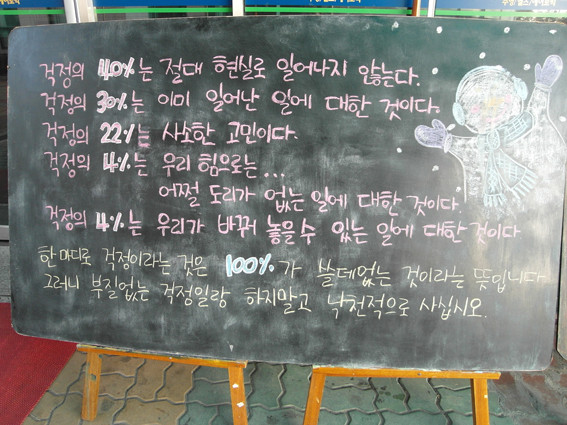 걱정의 40%는 절대 현실로 일어나지 않는다.
걱정의 30%는 이미 일어난 일에 대한 것이다.
걱정의 22%는 사소한 고민이다.
걱정의 4%는 우리 힘으로는...
어쩔 도리가 없는 일에 대한 것이다
걱정의 4%는 우리가 바꿔 놓을 수 있는 일에 대한 것이다
한마디로 걱정이라는 것은 100%가 쓸데없는 것이라는 뜻입니다
그러니 부질없는 걱정일랑 하지말고 낙천적으로 사십시오.